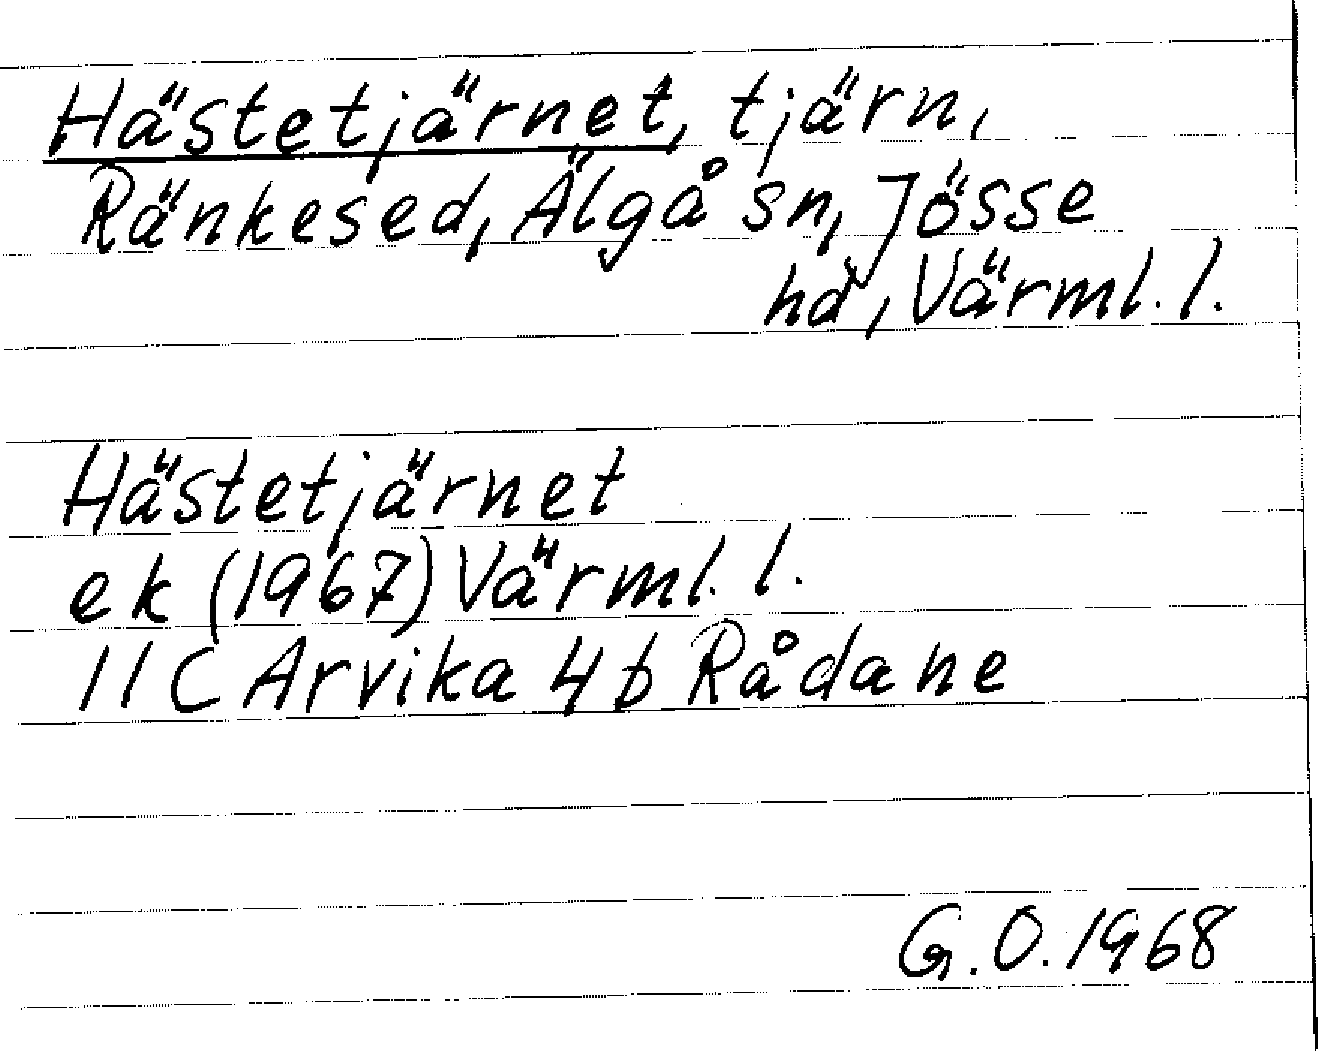 Hästetjärnet, tjärn,
Ränkesed, Älgå sn, Jösse
hd, Värml. l.
Hästetjärnet
ek (1967) Värml. l.
11C Arvika 4b Rådane
G.O. 1968